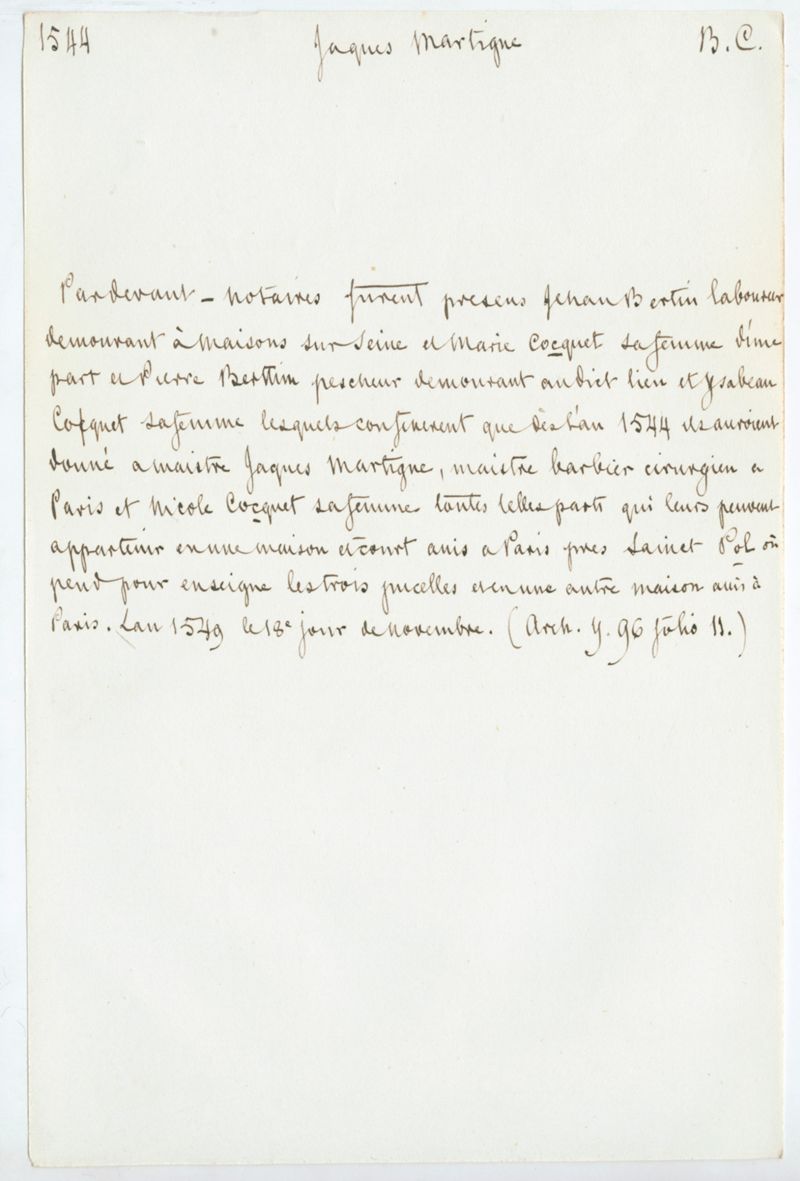 1544 Jaques Martigne B. C.
Pardevant – notaires furent presens Jehan Bertin laboureur
demourant à Maisons sur Seine et Marie Cocquet sa femme d'une
part et Pierre Berttin pescheur demourant audict lieu et Ysabeau
Cocquet sa femme lesquels confererent que dès l'an 1544 ils auroient
donné a maistre Jaques Martigne, maistre barbier cirurgien a
Paris et Nicole Cocquet sa femme toutes telles parts qui leurs peuvent
appartenir en une maison et court assis a Paris pres Sainct Pol où
pend pour enseigne les trois pucelles et en une autre maison assis à
Paris. Lan 1549 le 18e jour de novembre. (Arch. Y. 96 folio 11.)